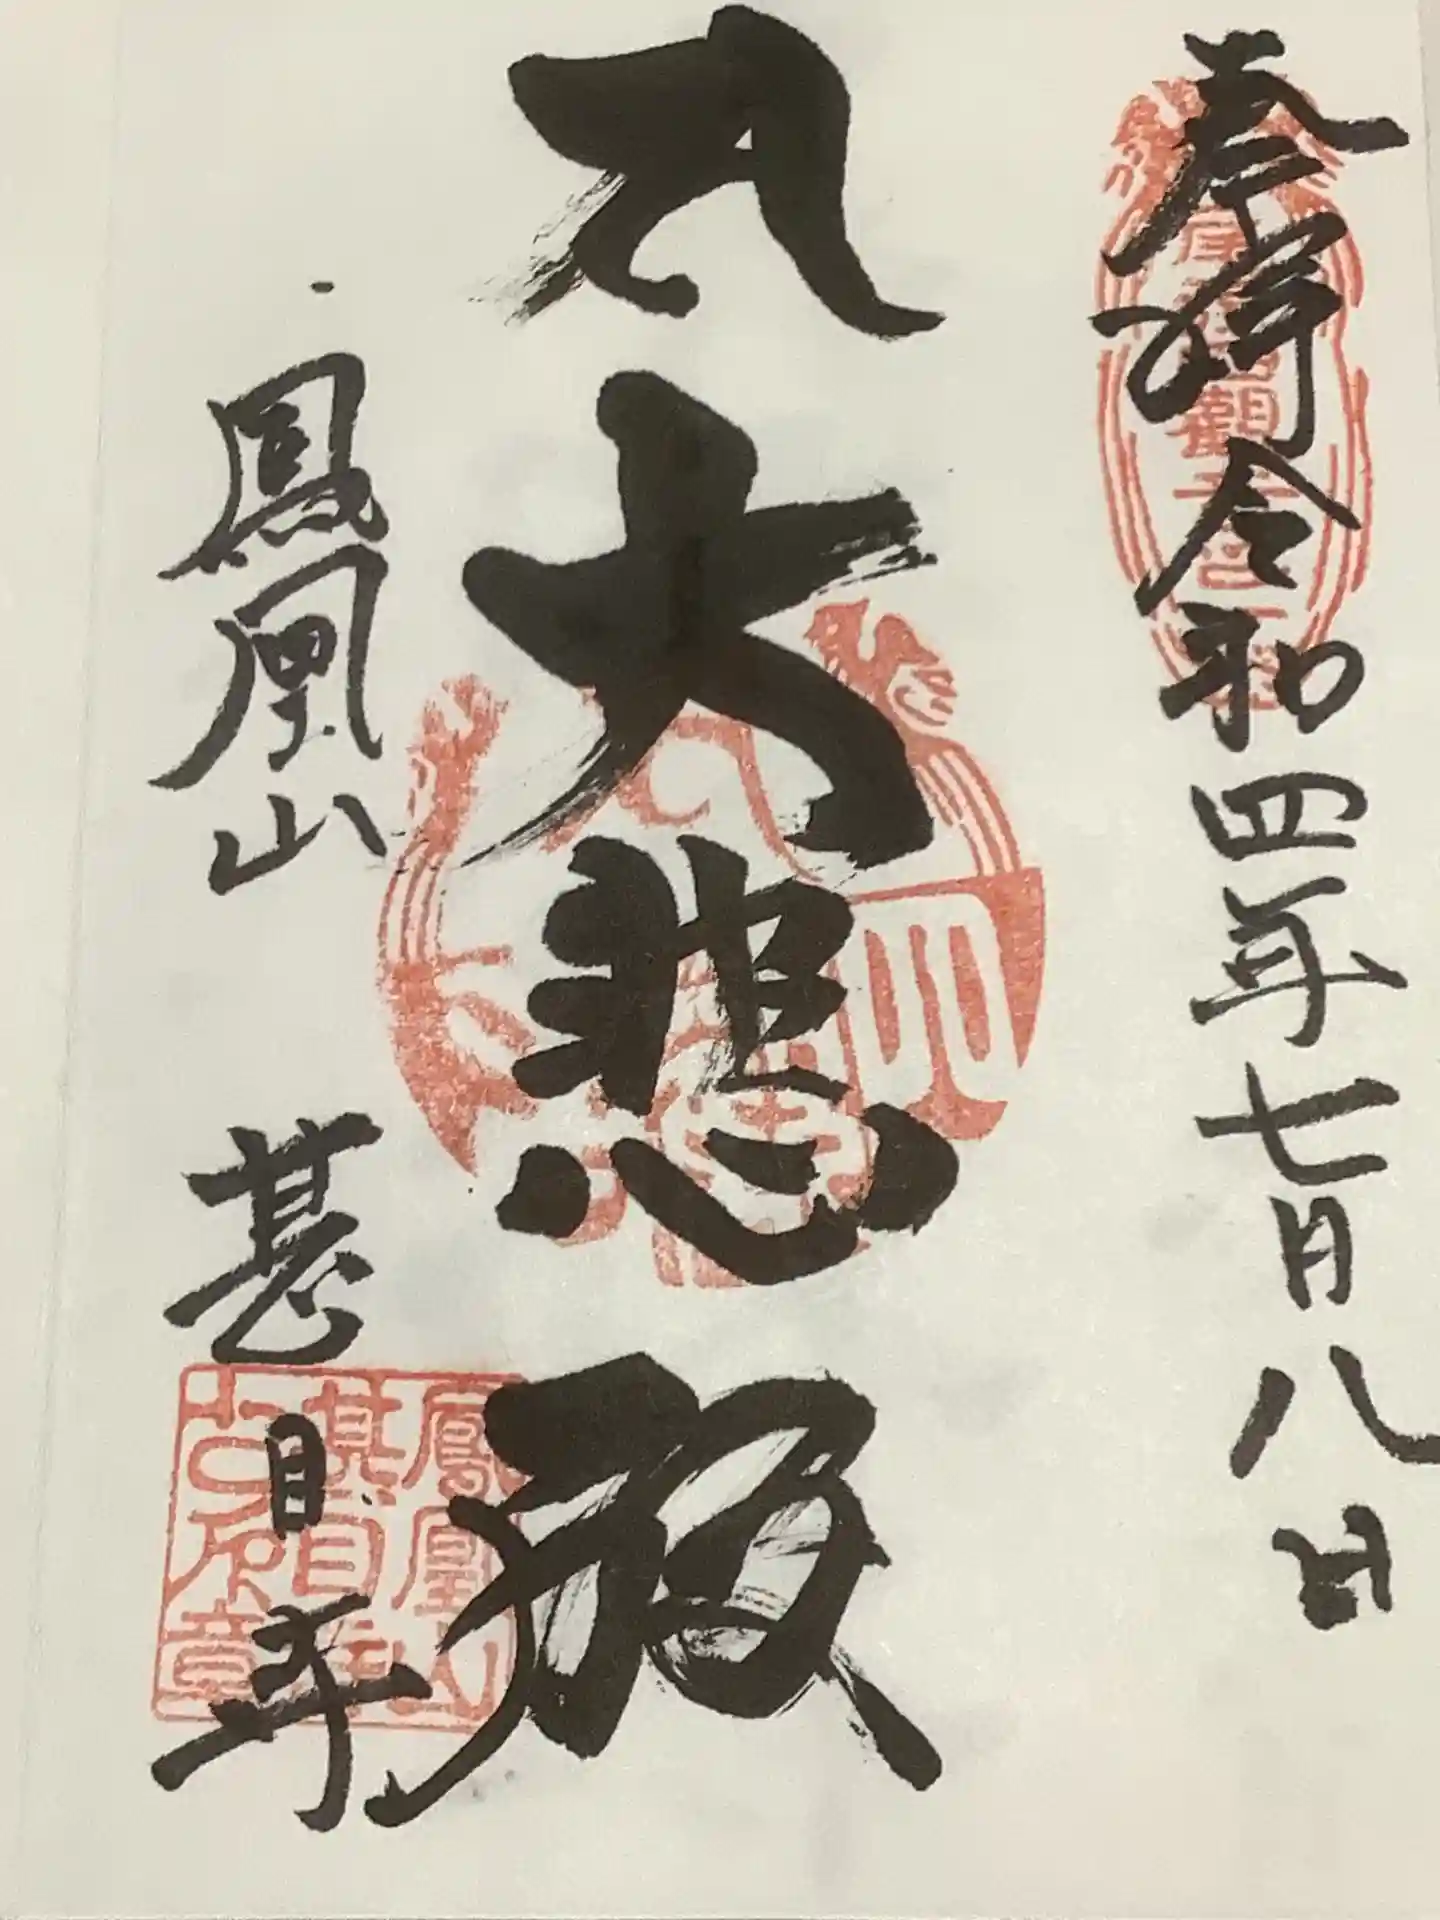 奉拝令和四年七月八日
大悲殿
鳳凰山 甚目寺
鳳凰山
甚目寺